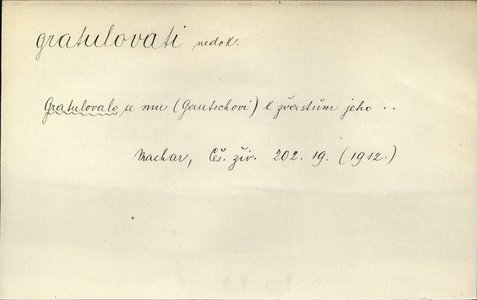 gratulovati nedok.
Gratulovalo se mu (Gautschovi) k zvěrstům jeho ..
Machar, Čes. živ. 202. 19. (1912.)